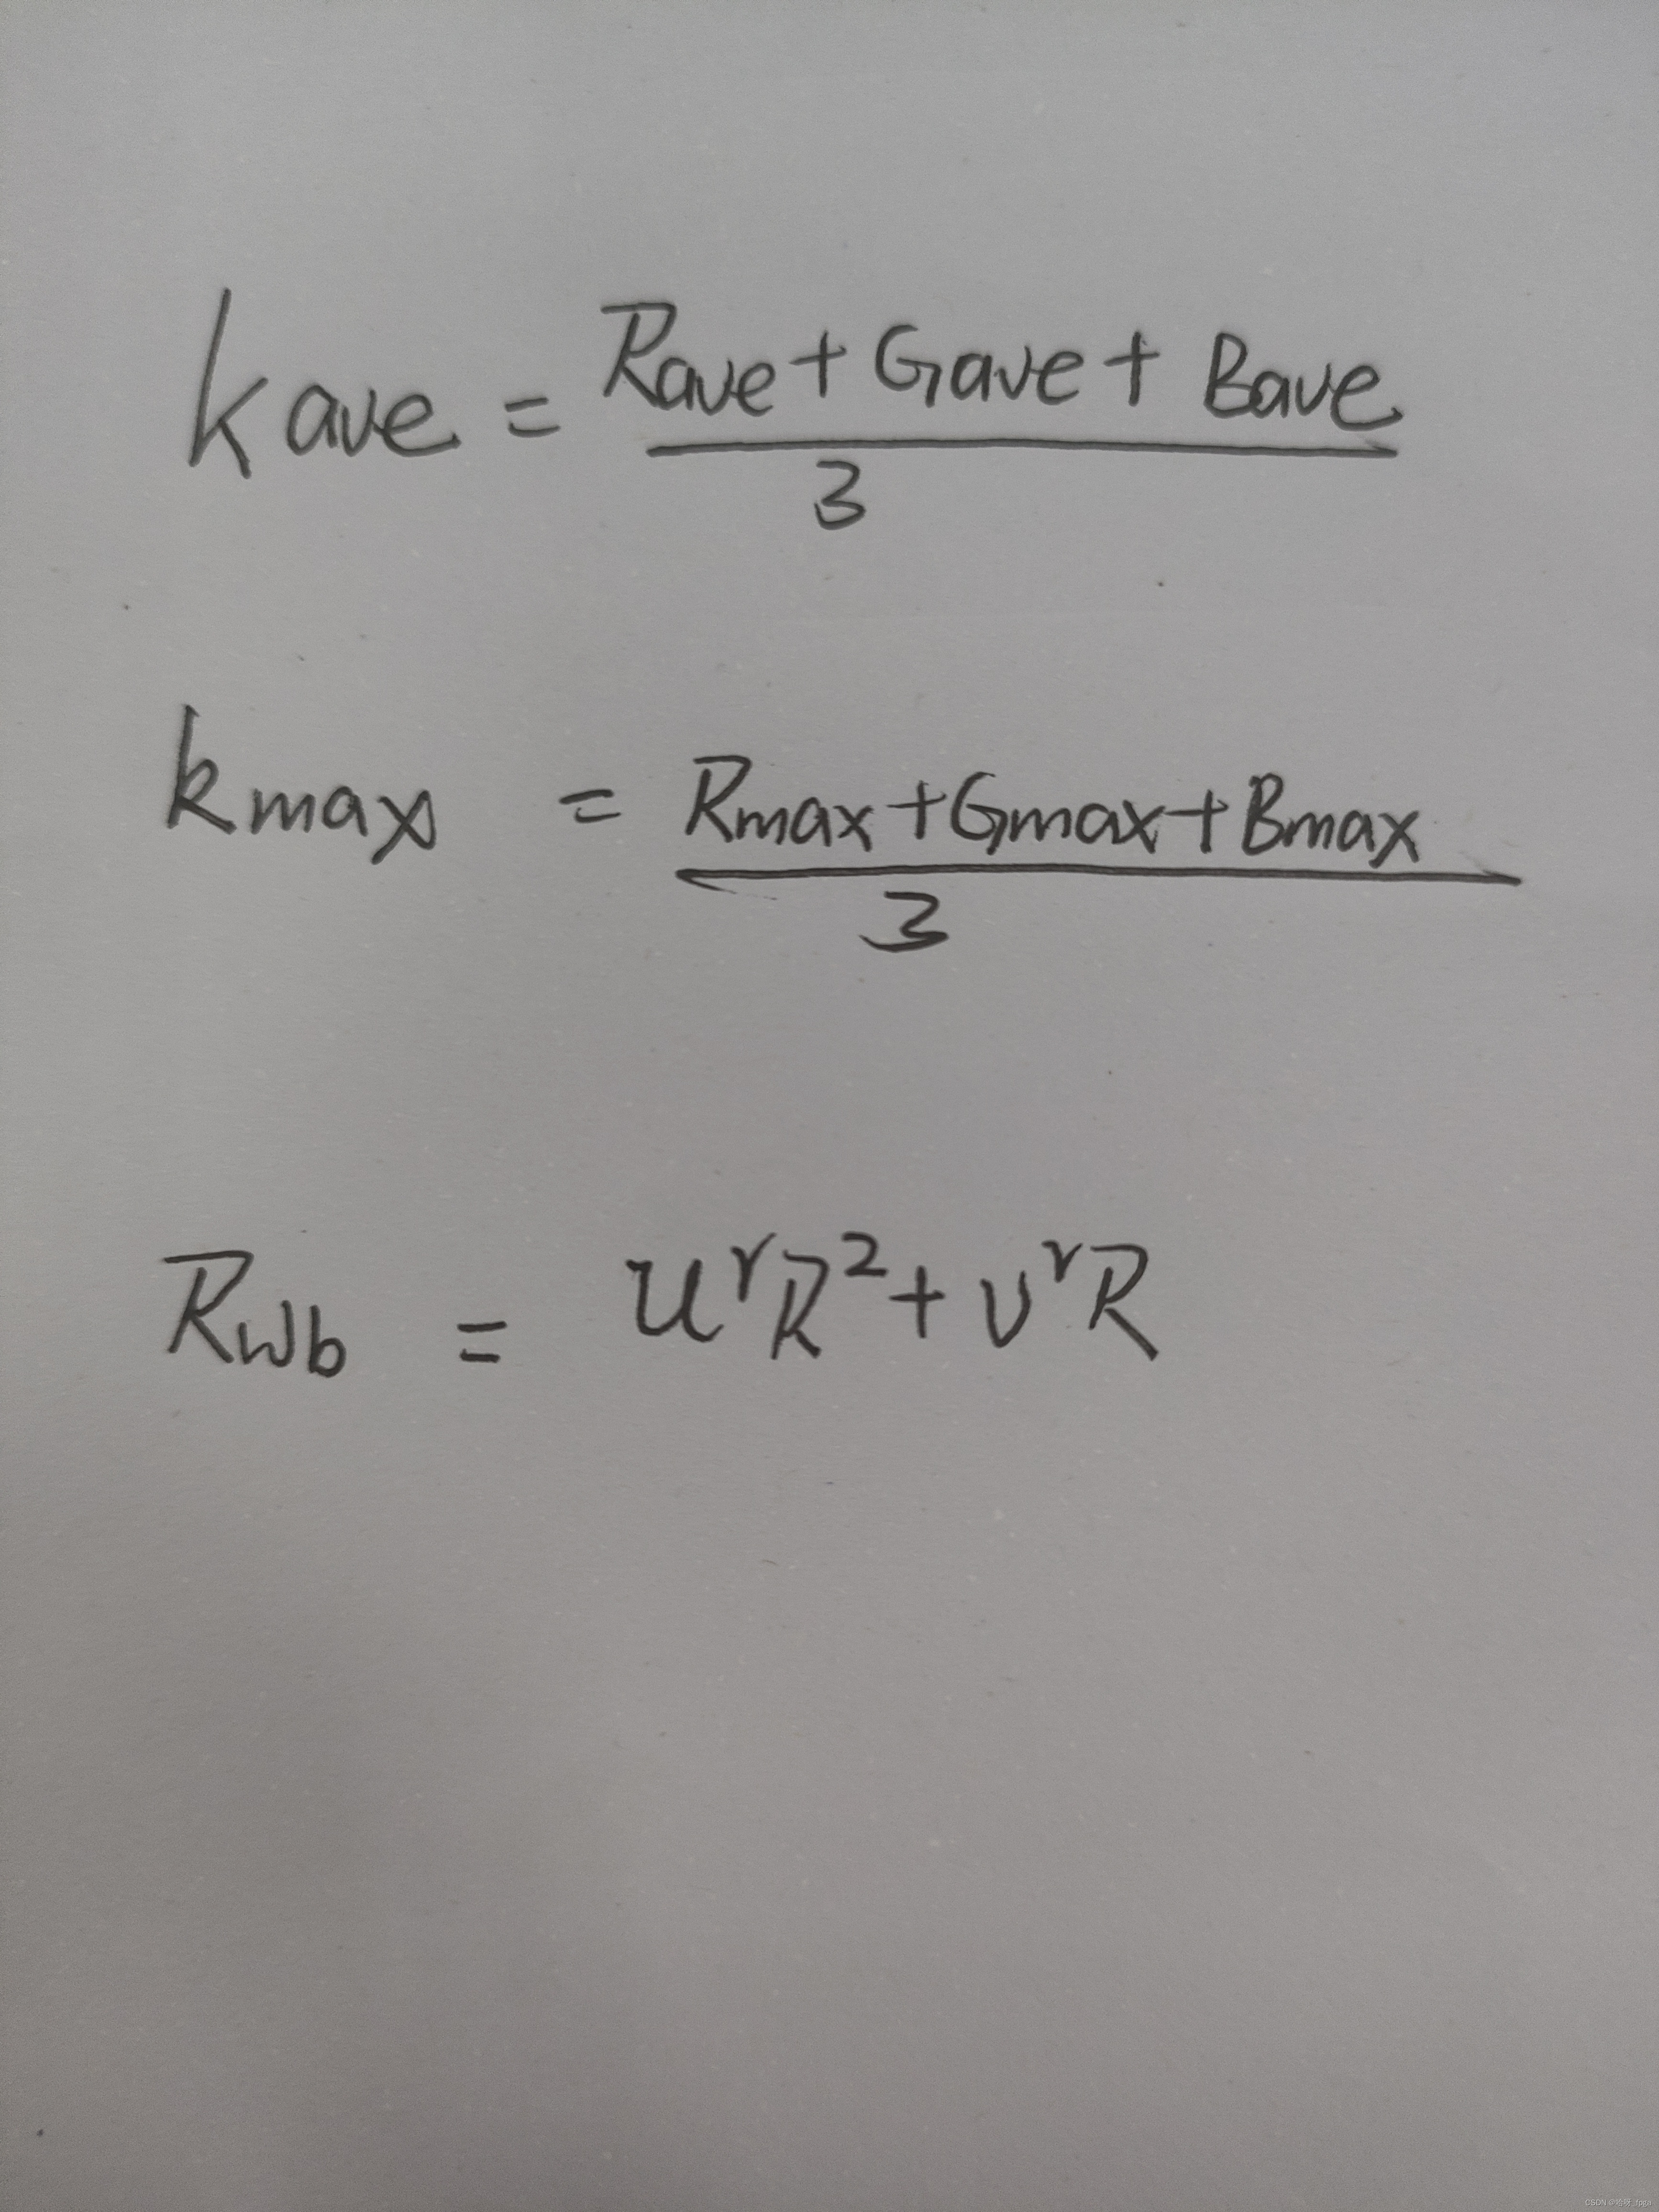 kave = Rave + Gave + Bave / 3
kmax = Rmax + Gmax + Bmax / 3
Rwb = u^r R^2 + v^r R